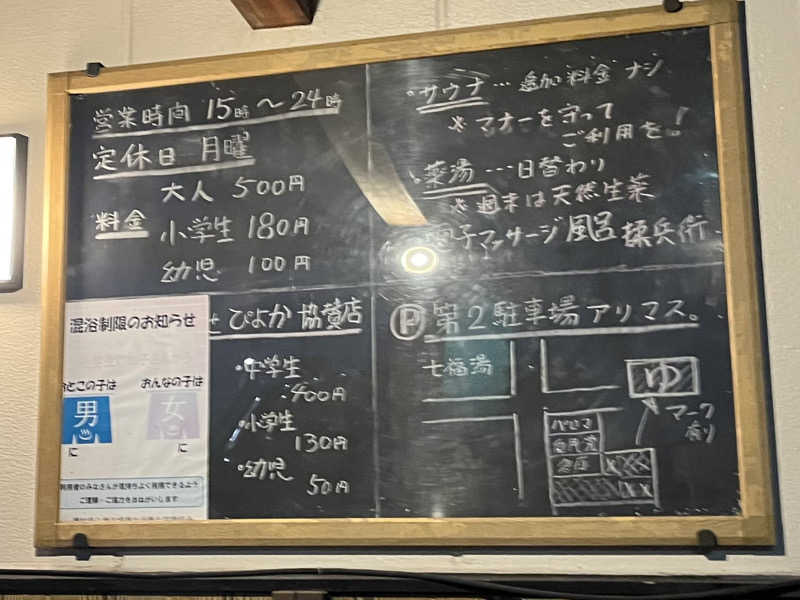 営業時間 15時～24時
定休日 月曜
料金
大人 500円
小学生 180円
幼児 100円
・サウナ…追加料金ナシ
※マナーを守って
ご利用を!
・薬湯…日替わり
※週末は天然生薬
子マッサージ風呂 揉兵衛
混浴制限のお知らせ
とこの子は おんなの子は
男 女
に に
利用者のみなさんが気持ちよく利用できるよう
ご理解・ご協力をおねがいします
ぴよか 協賛店
・中学生
400円
・小学生
130円
・幼児
50円
P 第2駐車場アリマス。
七福湯
ゆ
マーク
有り
パロマ
倉庫